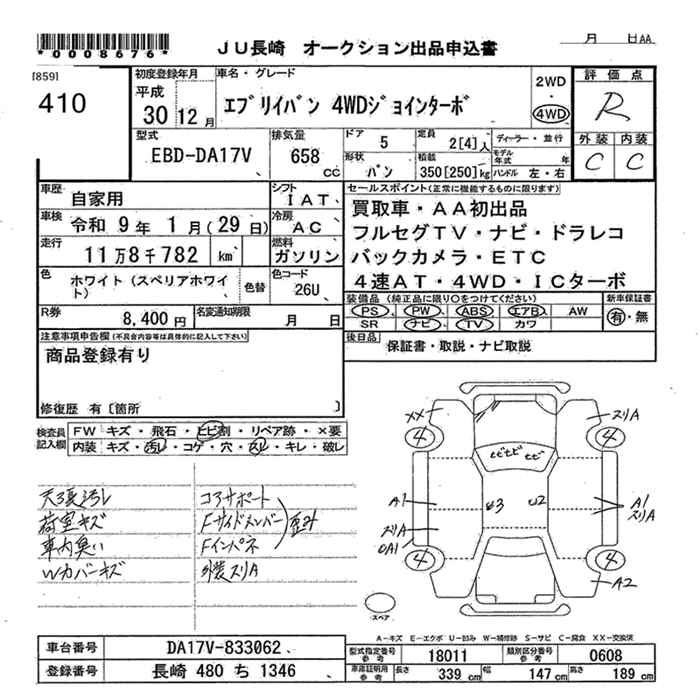 *0008676*
JU長崎 オークション出品申込書
月 日AA
[859]
410
初度登録年月
平成
30 12月
車名・グレード
エブリイバン 4WDジョインターボ
2WD
・
4WD
評価点
R
型式
EBD-DA17V
排気量
658 cc
ドア
5
定員
2[4]人
ディーラー・並行
形状
バン
積載
350[250]kg
モデル年式 年
ハンドル 左・右
外装 内装
C C
車歴
自家用
シフト
IAT
車検
令和 9年 1月(29日)
冷房
AC
走行
11万8千782 km
燃料
ガソリン
色
ホワイト(スペリアホワイト)
色替
色コード
26U
R券
8,400円
名変通知期限
月 日
セールスポイント(正常に機能するものに限ります)
買取車・AA初出品
フルセグTV・ナビ・ドラレコ
バックカメラ・ETC
4速AT・4WD・ICターボ
装備品(純正品に限り○をつけてください)
新車保証書
PS PW ABS エアB AW
SR ナビ TV カワ
有・無
後日品
保証書・取説・ナビ取説
注意事項申告欄(不具合内容等は具体的に記入して下さい)
商品登録有り
修復歴 有〔箇所 〕
検査員記入欄
FW キズ・飛石・ヒビ割・リペア跡・×要
内装 キズ・汚レ・コゲ・穴・スレ・キレ・破レ
天張汚レ
荷室キズ
車内臭い
Wカバーキズ
コアサポート
Fサイドメンバー
Fインパネ
歪み
外装スリA
XX
スリA
4
4
ビビビ
A1
U3
U2
A1
スリA
スリA
A1
4
4
A2
スペア
A-キズ E-エクボ U-凹み W-補修跡 S-サビ C-腐食 XX-交換済
車台番号
DA17V-833062
登録番号
長崎 480 ち 1346
型式指定番号 参考
18011
類別区分番号 参考
0608
車庫証明用 参考
長さ
339 cm
幅
147 cm
高さ
189 cm